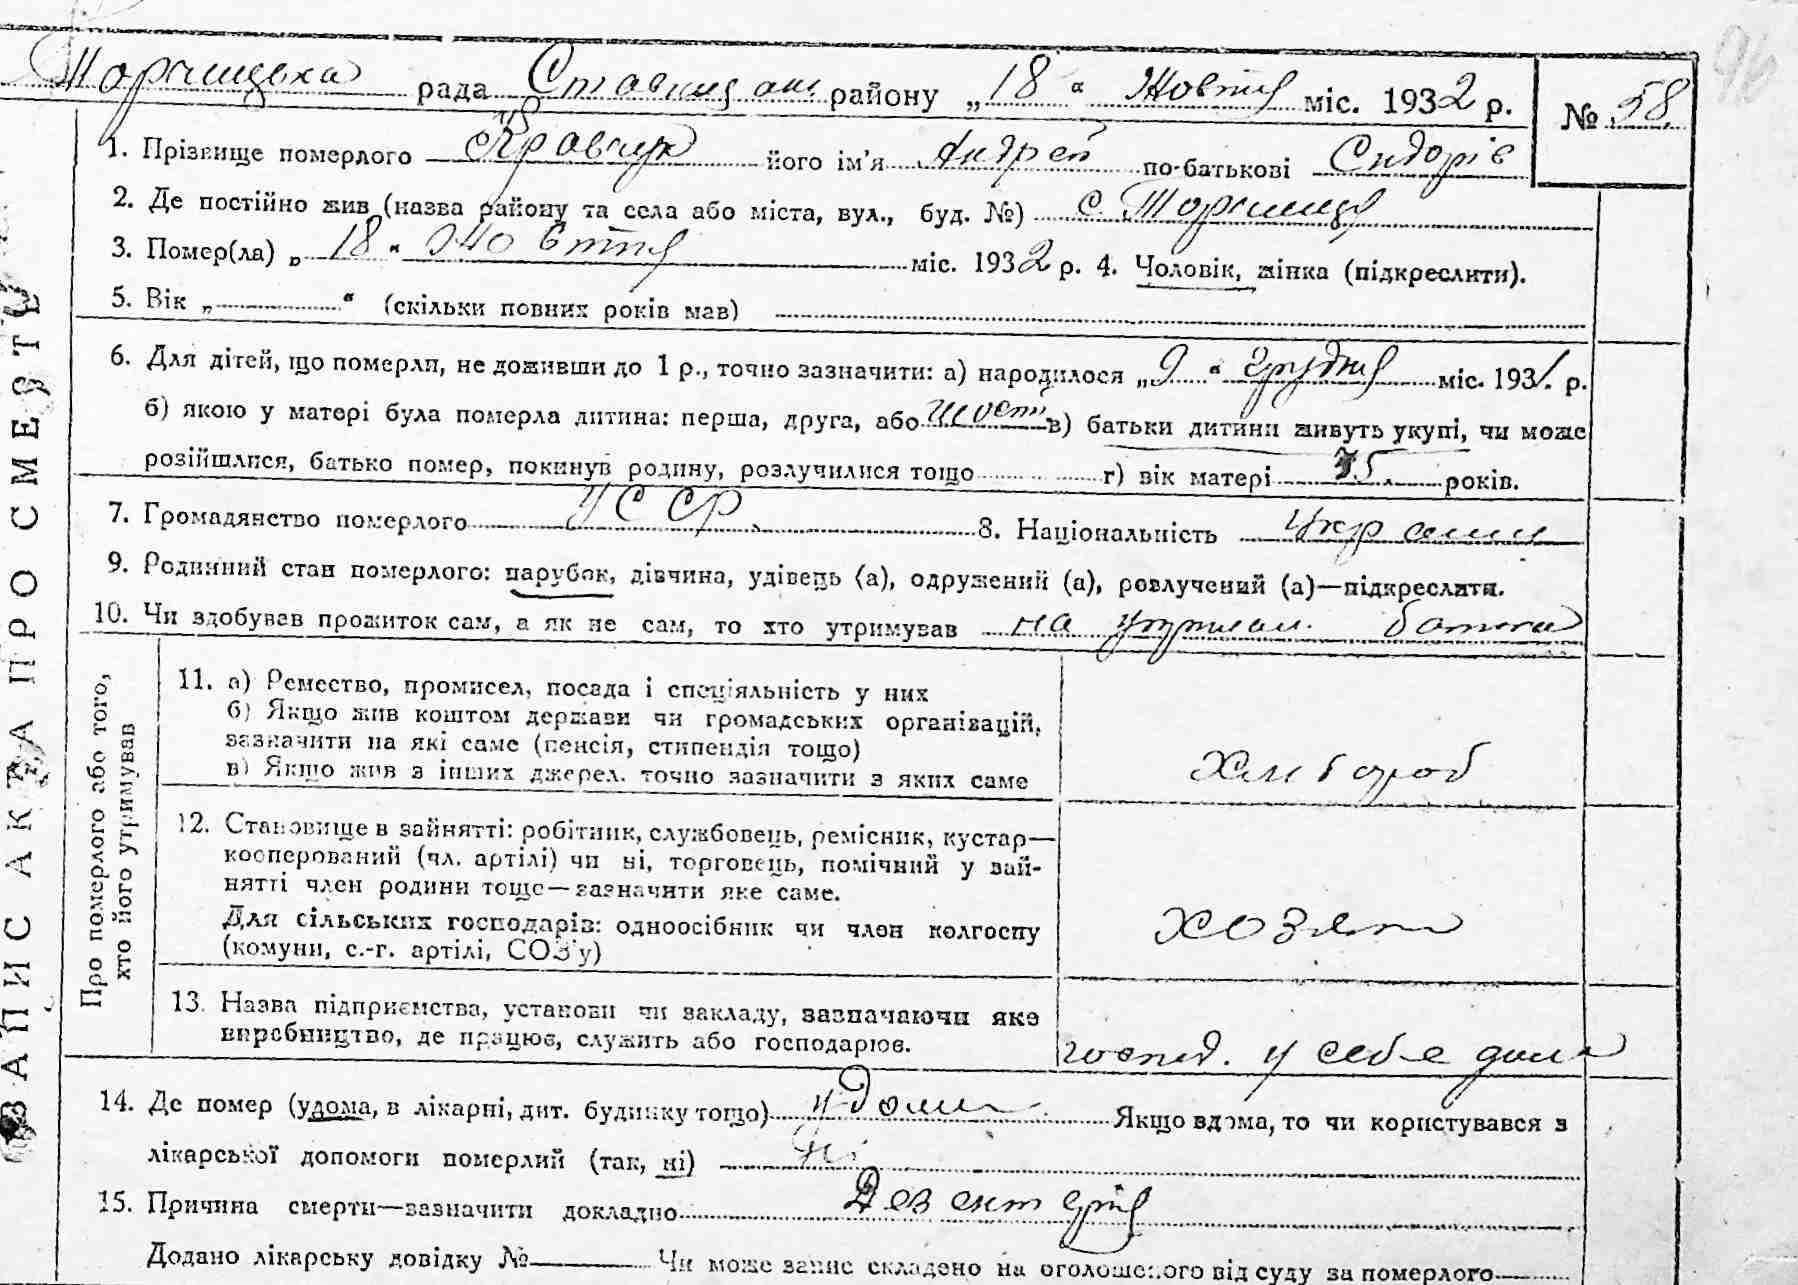 96
Торчицька рада Ставищан району „18“ Жовтня міс. 1932 р. № 58
1. Прізвище померлого Кравчук його ім'я Андрей по-батькові Сидорів
2. Де постійно жив (назва району та села або міста, вул., буд. №) с. Торчиця
3. Помер(ла) „18“ Жовтня міс. 1932 р. 4. Чоловік, жінка (підкреслити).
5. Вік „ “ (скільки повних років мав)
6. Для дітей, що померли, не доживши до 1 р., точно зазначити: а) народилося „9“ грудня міс. 1931. р.
б) якою у матері була померла дитина: перша, друга, або шост в) батьки дитини живуть укупі, чи може
розійшлися, батько помер, покинув родину, розлучилися тощо г) вік матері 35 років.
7. Громадянство померлого УССР 8. Національність
9. Родинний стан померлого: парубок, дівчина, удівець (а), одружений (а), розлучений (а)—підкреслити.
10. Чи здобував прожиток сам, а як не сам, то хто утримував на утриман. батька
ЗАПИС АКТА ПРО СМЕРТЬ
Про померлого або того,
хто його утримував
11. а) Ремество, промисел, посада і спеціяльність у них
б) Якщо жив коштом держави чи громадських організацій,
зазначити на які саме (пенсія, стипендія тощо)
в) Якщо жив з інших джерел, точно зазначити з яких саме
хлибороб
12. Становище в зайнятті: робітник, службовець, ремісник, кустар—
кооперований (чл. артілі) чи ні, торговець, помічний у зай-
нятті член родини тощо—зазначити яке саме.
Для сільських господарів: одноосібник чи член колгоспу
(комуни, с.-г. артілі, СОЗ'у)
хозяин
13. Назва підприємства, установи чи закладу, зазначаючи яке
виробництво, де працює, служить або господарює.
господ. у себе дома
14. Де помер (удома, в лікарні, дит. будинку тощо) удома Якщо вдома, то чи користувався з
лікарської допомоги померлий (так, ні) ні
15. Причина смерти—зазначити докладно Дезентерія
Додано лікарську довідку № Чи може запис складено на оголошеного від суду за померлого